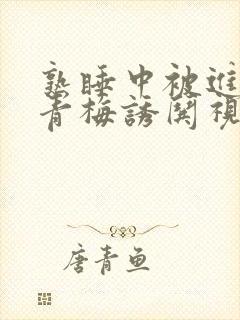 熟睡中被進
青梅誘関視
唐青鱼